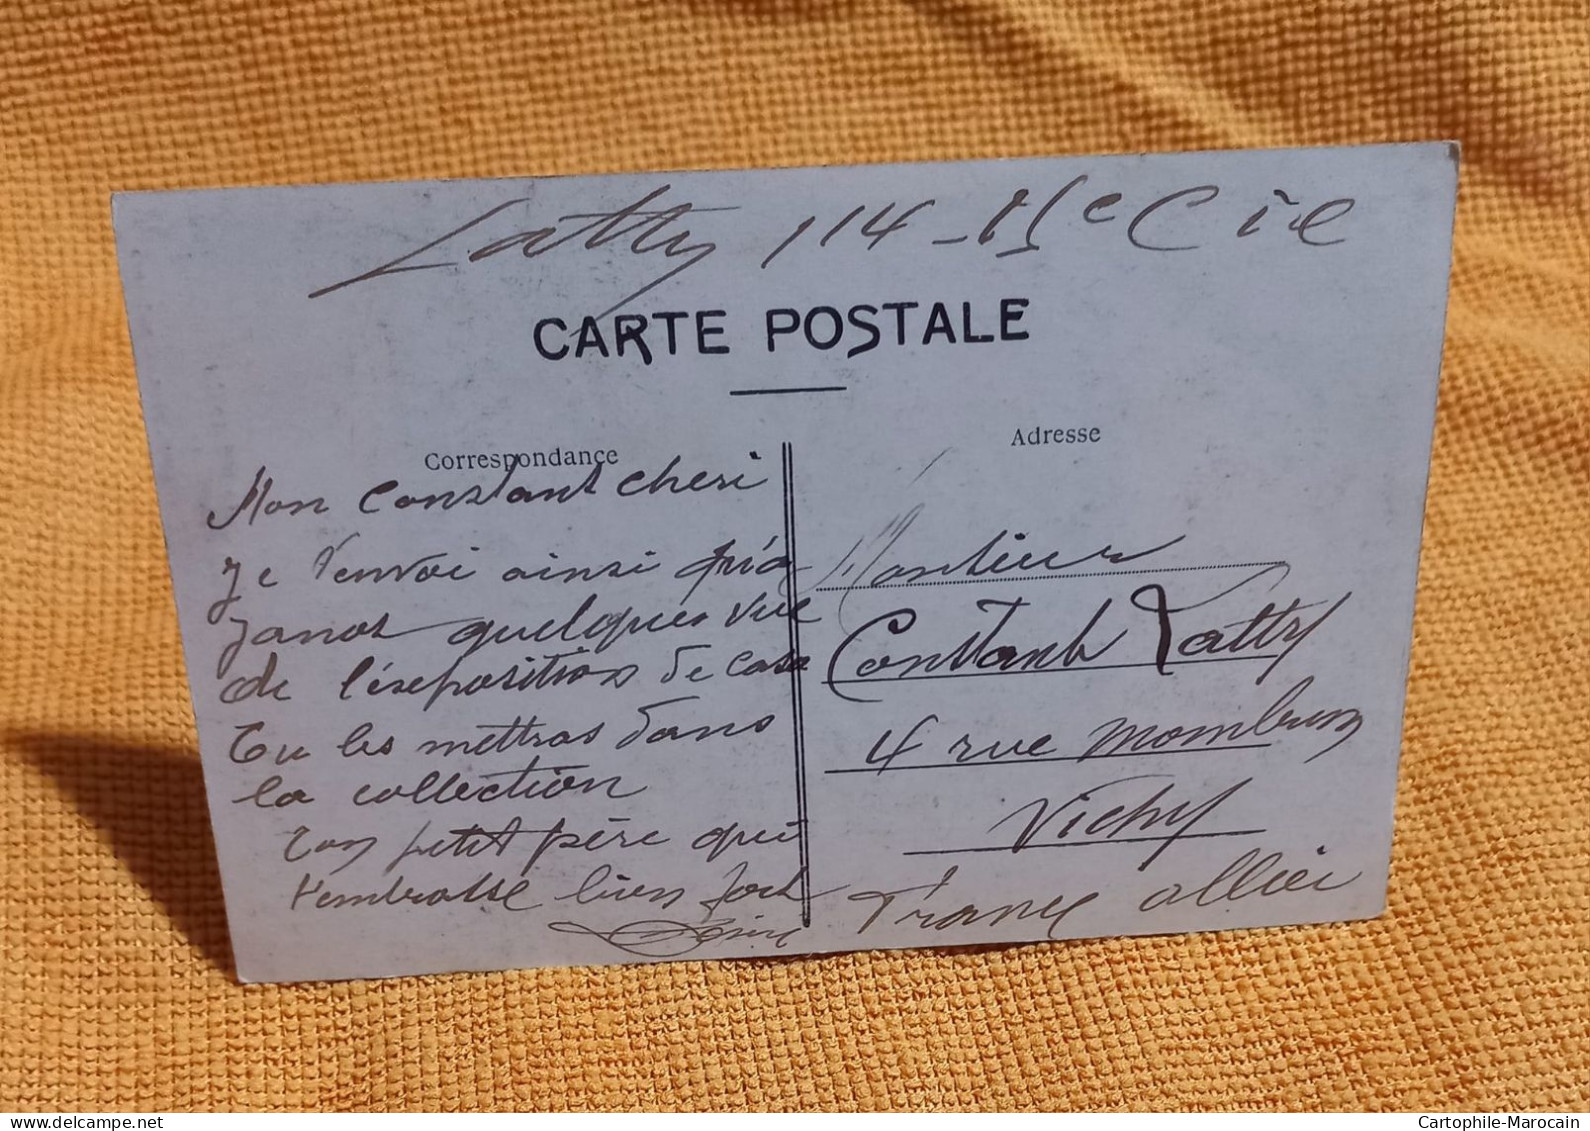 Latty 114 - 15e Cie
CARTE POSTALE
Correspondance
Mon Constant cheri
Je t'envoi ainsi qu'a
Janot quelques vue
de l'exeposition de casa
Tu les mettras dans
la collection
Ton petit père qui
t'embrasse bien fort
Adresse
Monsieur
Constant Latty
4 rue
Vichy
France allier
Cartophile-Marocain